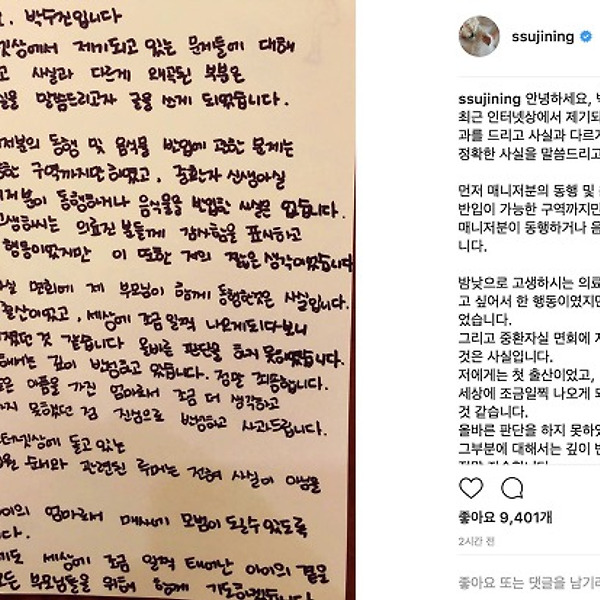 . 박수진입니다
넷상에서 제기되고 있는 문제들에 대해
고 사실과 다르게 왜곡된 부분은
실을 말씀드리고자 글을 쓰게 되었습니다.
저분의 동행 및 음식물 반입에 관한 문제는
능한 구역까지만 하였고, 중환자 신생아실
저분이 동행하거나 음식물을 반입한 사실은 없습니다.
고생하시는 의료진 분들께 감사함을 표시하고
행동이였지만 이 또한 저의 짧은 생각이였습니다
사실 면회에 제 부모님이 함께 동행한것은 사실입니다.
출산이였고, 세상에 조금 일찍 나오게되다보니
했던 것 같습니다. 올바른 판단을 하지 못하였습니다.
해서는 깊이 반성하고 있습니다. 정말 죄송합니다.
은 아픔을 가진 엄마로서 조금 더 생각하고
하지 못했던 점 진심으로 반성하고 사과드립니다.
터넷상에 돌고있는
원 순서와 관련된 루머는 전혀 사실이 아님을
아이의 엄마로서 매사에 모범이 될수있도록
다.
세도 세상에 조금 일찍 태어난 아이의 곁을
모든 부모님들을 위해 함께 기도하겠습니다
ssujining
ssujining 안녕하세요, 박
최근 인터넷상에서 제기되
과를 드리고 사실과 다르게
정확한 사실을 말씀드리고
먼저 매니저분의 동행 및
반입이 가능한 구역까지만
매니저분이 동행하거나 음
니다.
밤낮으로 고생하시는 의료
고 싶어서 한 행동이였지만
었습니다.
그리고 중환자실 면회에 제
것은 사실입니다.
저에게는 첫 출산이었고,
세상에 조금일찍 나오게 되
것 같습니다.
올바른 판단을 하지 못하였
그부분에 대해서는 깊이 반
좋아요 9,401개
2시간 전
좋아요 또는 댓글을 남기려